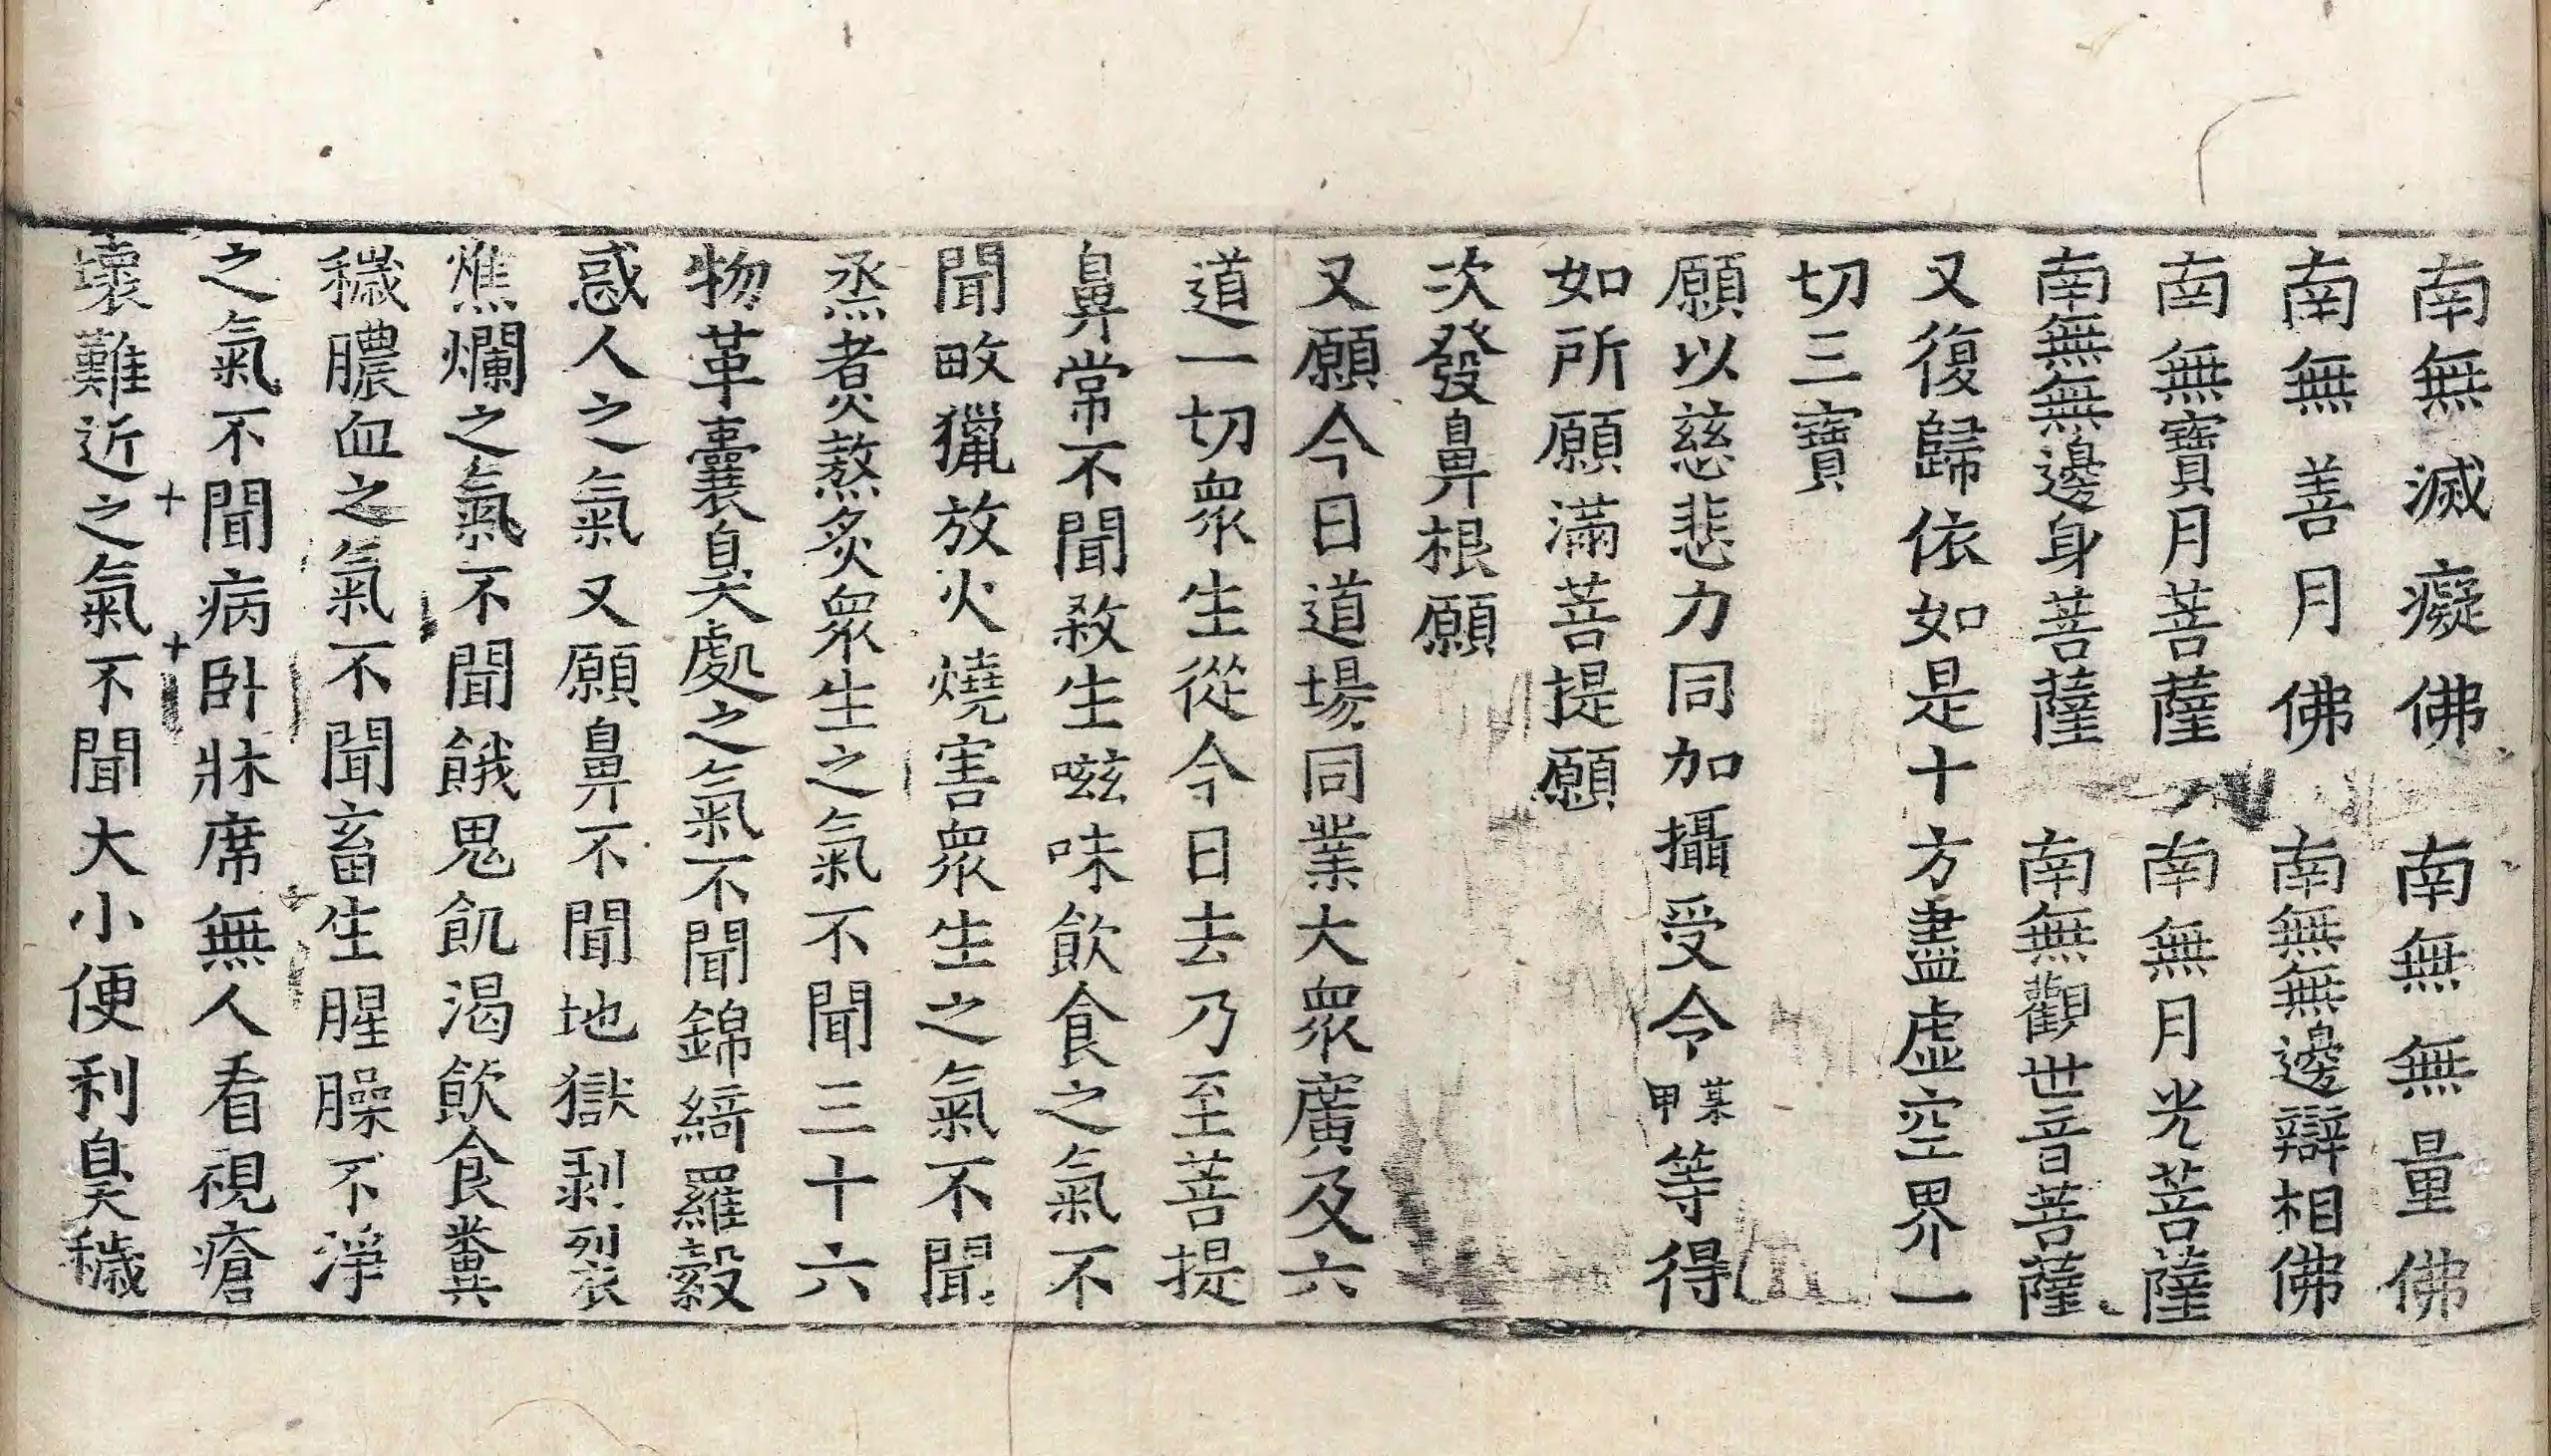 南無滅癡佛　南無無量佛
南無善月佛　南無無邊辯相佛
南無寶月菩薩　南無月光菩薩
南無無邊身菩薩　南無觀世音菩薩
又復歸依如是十方盡虛空界一
切三寶
願以慈悲力同加攝受令某甲等得
如所願滿菩提願
次發鼻根願
又願今日道場同業大衆廣及六
道一切衆生從今日去乃至菩提
鼻常不聞殺生嗞味飲食之氣不
聞畋獵放火燒害衆生之氣不聞
烝煮熬炙衆生之氣不聞三十六
物革囊臭處之氣不聞錦綺羅縠
惑人之氣又願鼻不聞地獄剥裂
燋爛之氣不聞餓鬼飢渴飲食糞
穢膿血之氣不聞畜生腥臊不淨
之氣不聞病卧牀席無人看視瘡
壞難近之氣不聞大小便利臭穢